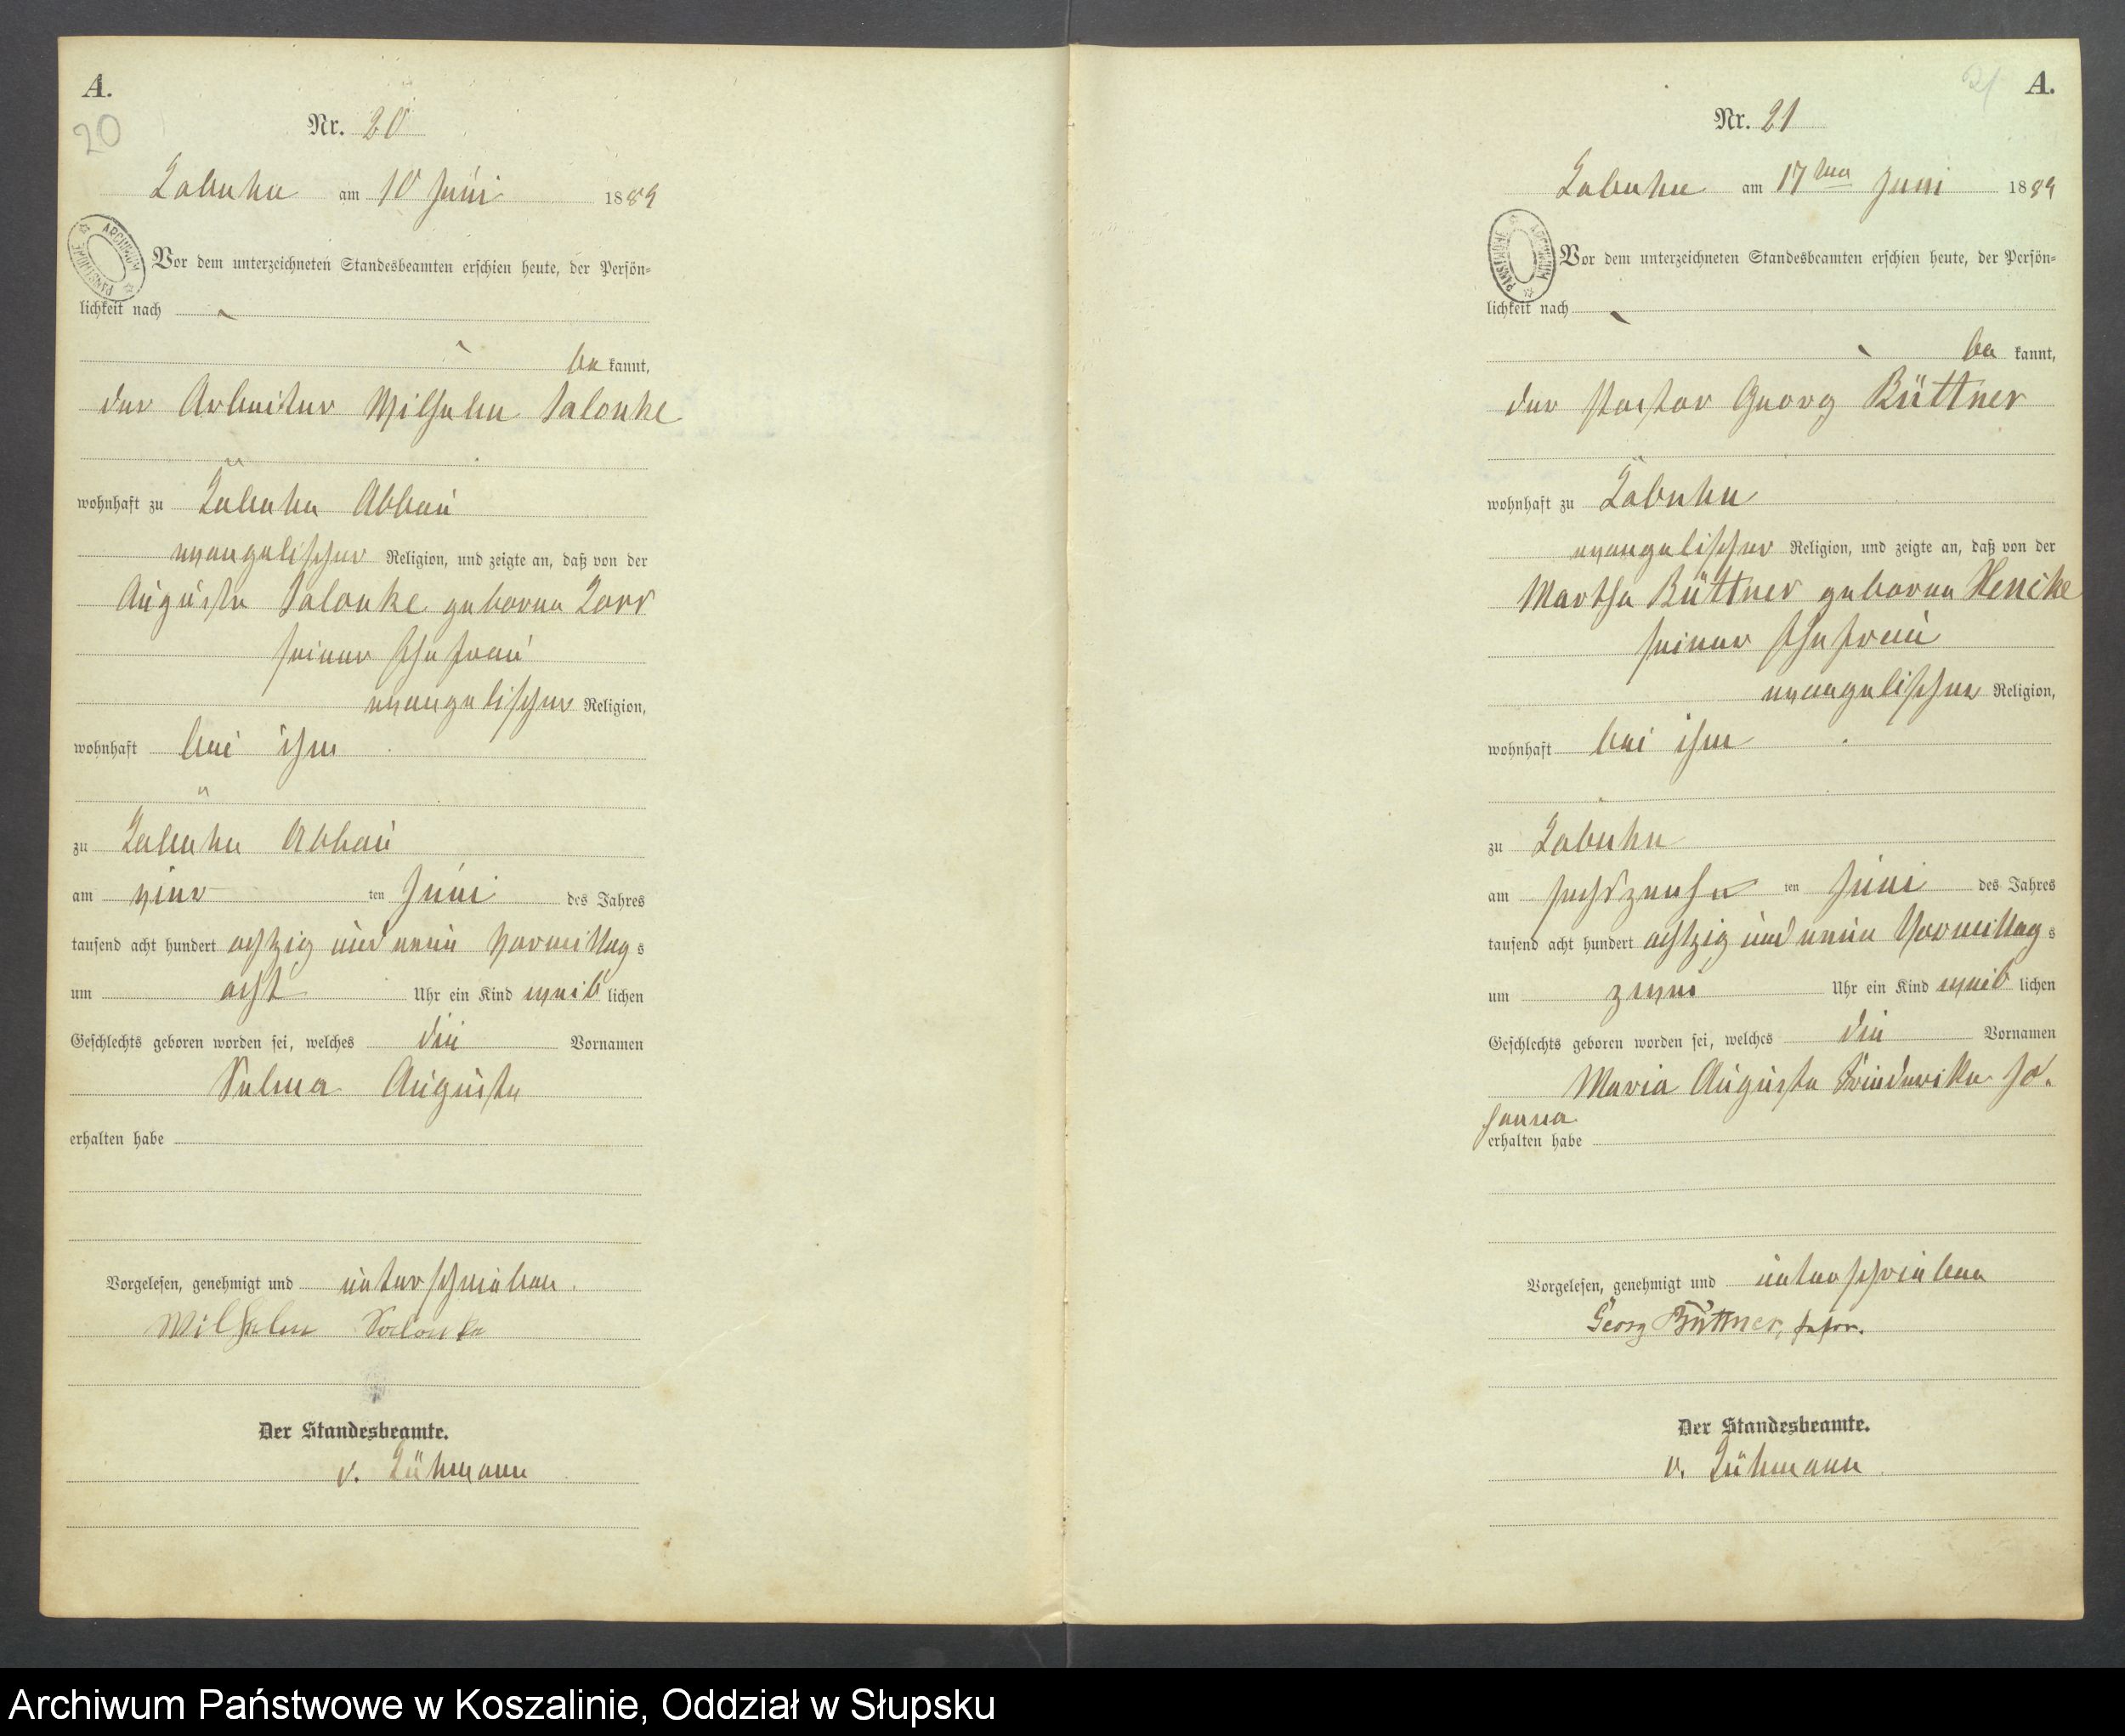 A.
20
Nr. 20
Labuhn am 10 Juni 1889
Vor dem unterzeichneten Standesbeamten erschien heute, der Persön=
lichkeit nach
be kannt,
der Arbeiter Wilhelm Salonke
wohnhaft zu Labuhn Abbau
evangelischer Religion, und zeigte an, daß von der
Auguste Salonke geborne Lorr
seiner Ehefrau
evangelischer Religion,
wohnhaft bei ihm
zu Labuhn Abbau
am vier ten Juni des Jahres
tausend acht hundert achtzig und neun Vormittag s
um acht Uhr ein Kind weib lichen
Geschlechts geboren worden sei, welches die Vornamen
Selma Auguste
erhalten habe
Vorgelesen, genehmigt und unterschrieben.
Wilhelm Salonke
Der Standesbeamte.
v. Lühmann
21
A.
Nr. 21
Labuhn am 17ten Juni 1889
Vor dem unterzeichneten Standesbeamten erschien heute, der Persön=
lichkeit nach
be kannt,
der Pastor Georg Büttner
wohnhaft zu Labuhn
evangelischer Religion, und zeigte an, daß von der
Martha Büttner geborne Hencke
seiner Ehefrau
evangelischer Religion,
wohnhaft bei ihm
zu Labuhn
am sechszehn ten Juni des Jahres
tausend acht hundert achtzig und neun Vormittag s
um zwei Uhr ein Kind weib lichen
Geschlechts geboren worden sei, welches die Vornamen
Maria Auguste Friederike Jo-
hanna
erhalten habe
Vorgelesen, genehmigt und unterschrieben
Georg Büttner, Pastor.
Der Standesbeamte.
v. Lühmann
ARCHIWUM PAŃSTWOWE
Archiwum Państwowe w Koszalinie, Oddział w Słupsku